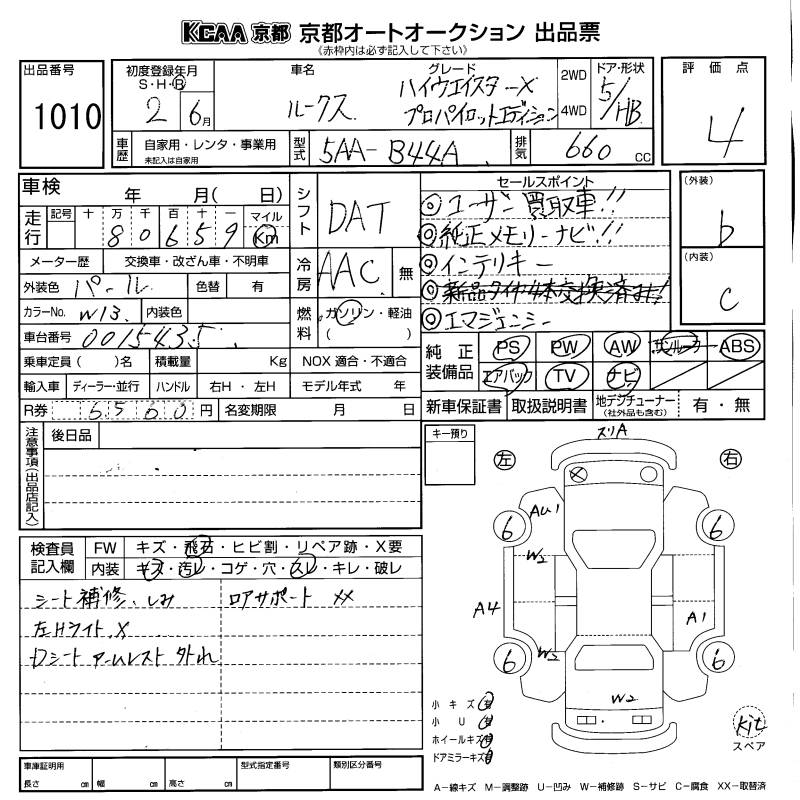 KCAA 京都 京都オートオークション 出品票
《赤枠内は必ず記入して下さい》
出品番号
1010
初度登録年月
S・H・R
2 6月
車名
ルークス
グレード
ハイウェイスターX
プロパイロットエディション
2WD
4WD
ドア・形状
5/HB
評価点
4
車歴
自家用・レンタ・事業用
未記入は自家用
型式
5AA-B44A
排気
660 CC
車検 年 月( 日)
走行
記号 十 万 千 百 十 一 マイル
80659 Km
メーター歴 交換車・改ざん車・不明車
外装色 パール 色替 有
カラーNo. W13 内装色
車台番号 0015435
乗車定員( )名 積載量 Kg NOX 適合・不適合
輸入車 ディーラー・並行 ハンドル 右H・左H モデル年式 年
R券 6560 円 名変期限 月 日
シフト DAT
冷房 AAC 無
燃料 ガソリン・軽油
( )
セールスポイント
◎ユーザー買取車!!
◎純正メモリーナビ!!
◎インテリキー
◎新品タイヤ4本交換済み!!
◎エマジェンシー
(外装)
b
(内装)
C
純正装備品
PS PW AW サンルーフ ABS
エアバック TV ナビ
新車保証書 取扱説明書 地デジチューナー(社外品も含む) 有・無
注意事項(出品店記入)
後日品
キー預り
検査員記入欄
FW キズ・飛石・ヒビ割・リペア跡・X要
内装 キズ・汚レ・コゲ・穴・スレ・キレ・破レ
シート補修、しみ ロアサポート XX
左Hライト X
Dシート アームレスト外れ
スリA
左 右
AU1
6 6
W2
A4 A1
W2
6 6
W2
小キズ 有
小U 有
ホイールキズ 有
ドアミラーキズ 有
kit
スペア
車庫証明用
長さ cm 幅 cm 高さ cm
型式指定番号
類別区分番号
A-線キズ M-調整跡 U-凹み W-補修跡 S-サビ C-腐食 XX-取替済